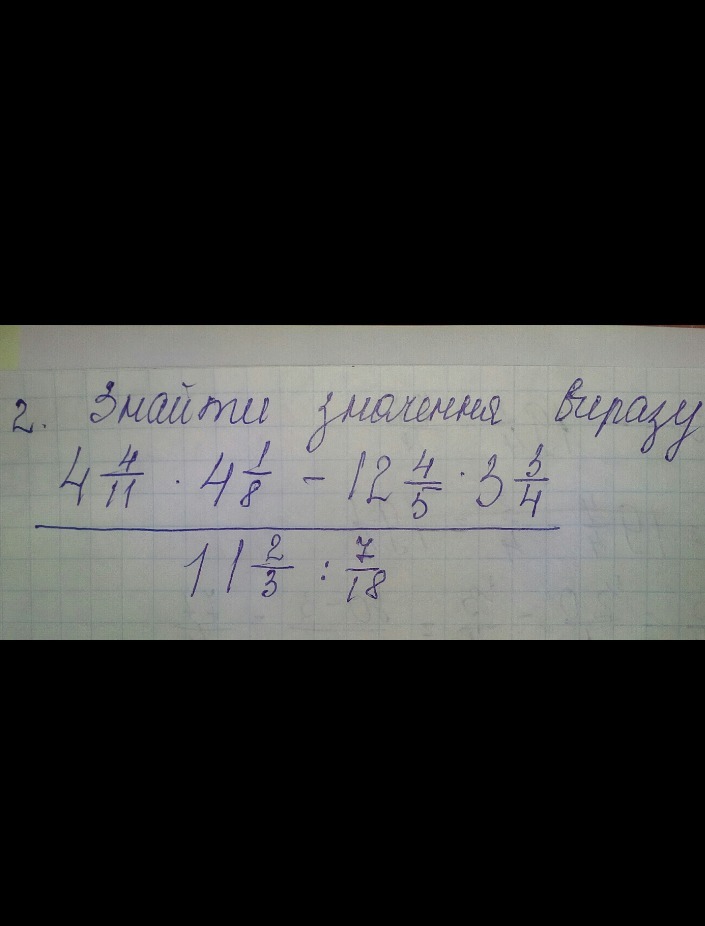 2. Знайти значення виразу
4 4/11 · 4 1/8 - 12 4/5 · 3 3/4
11 2/3 : 7/18